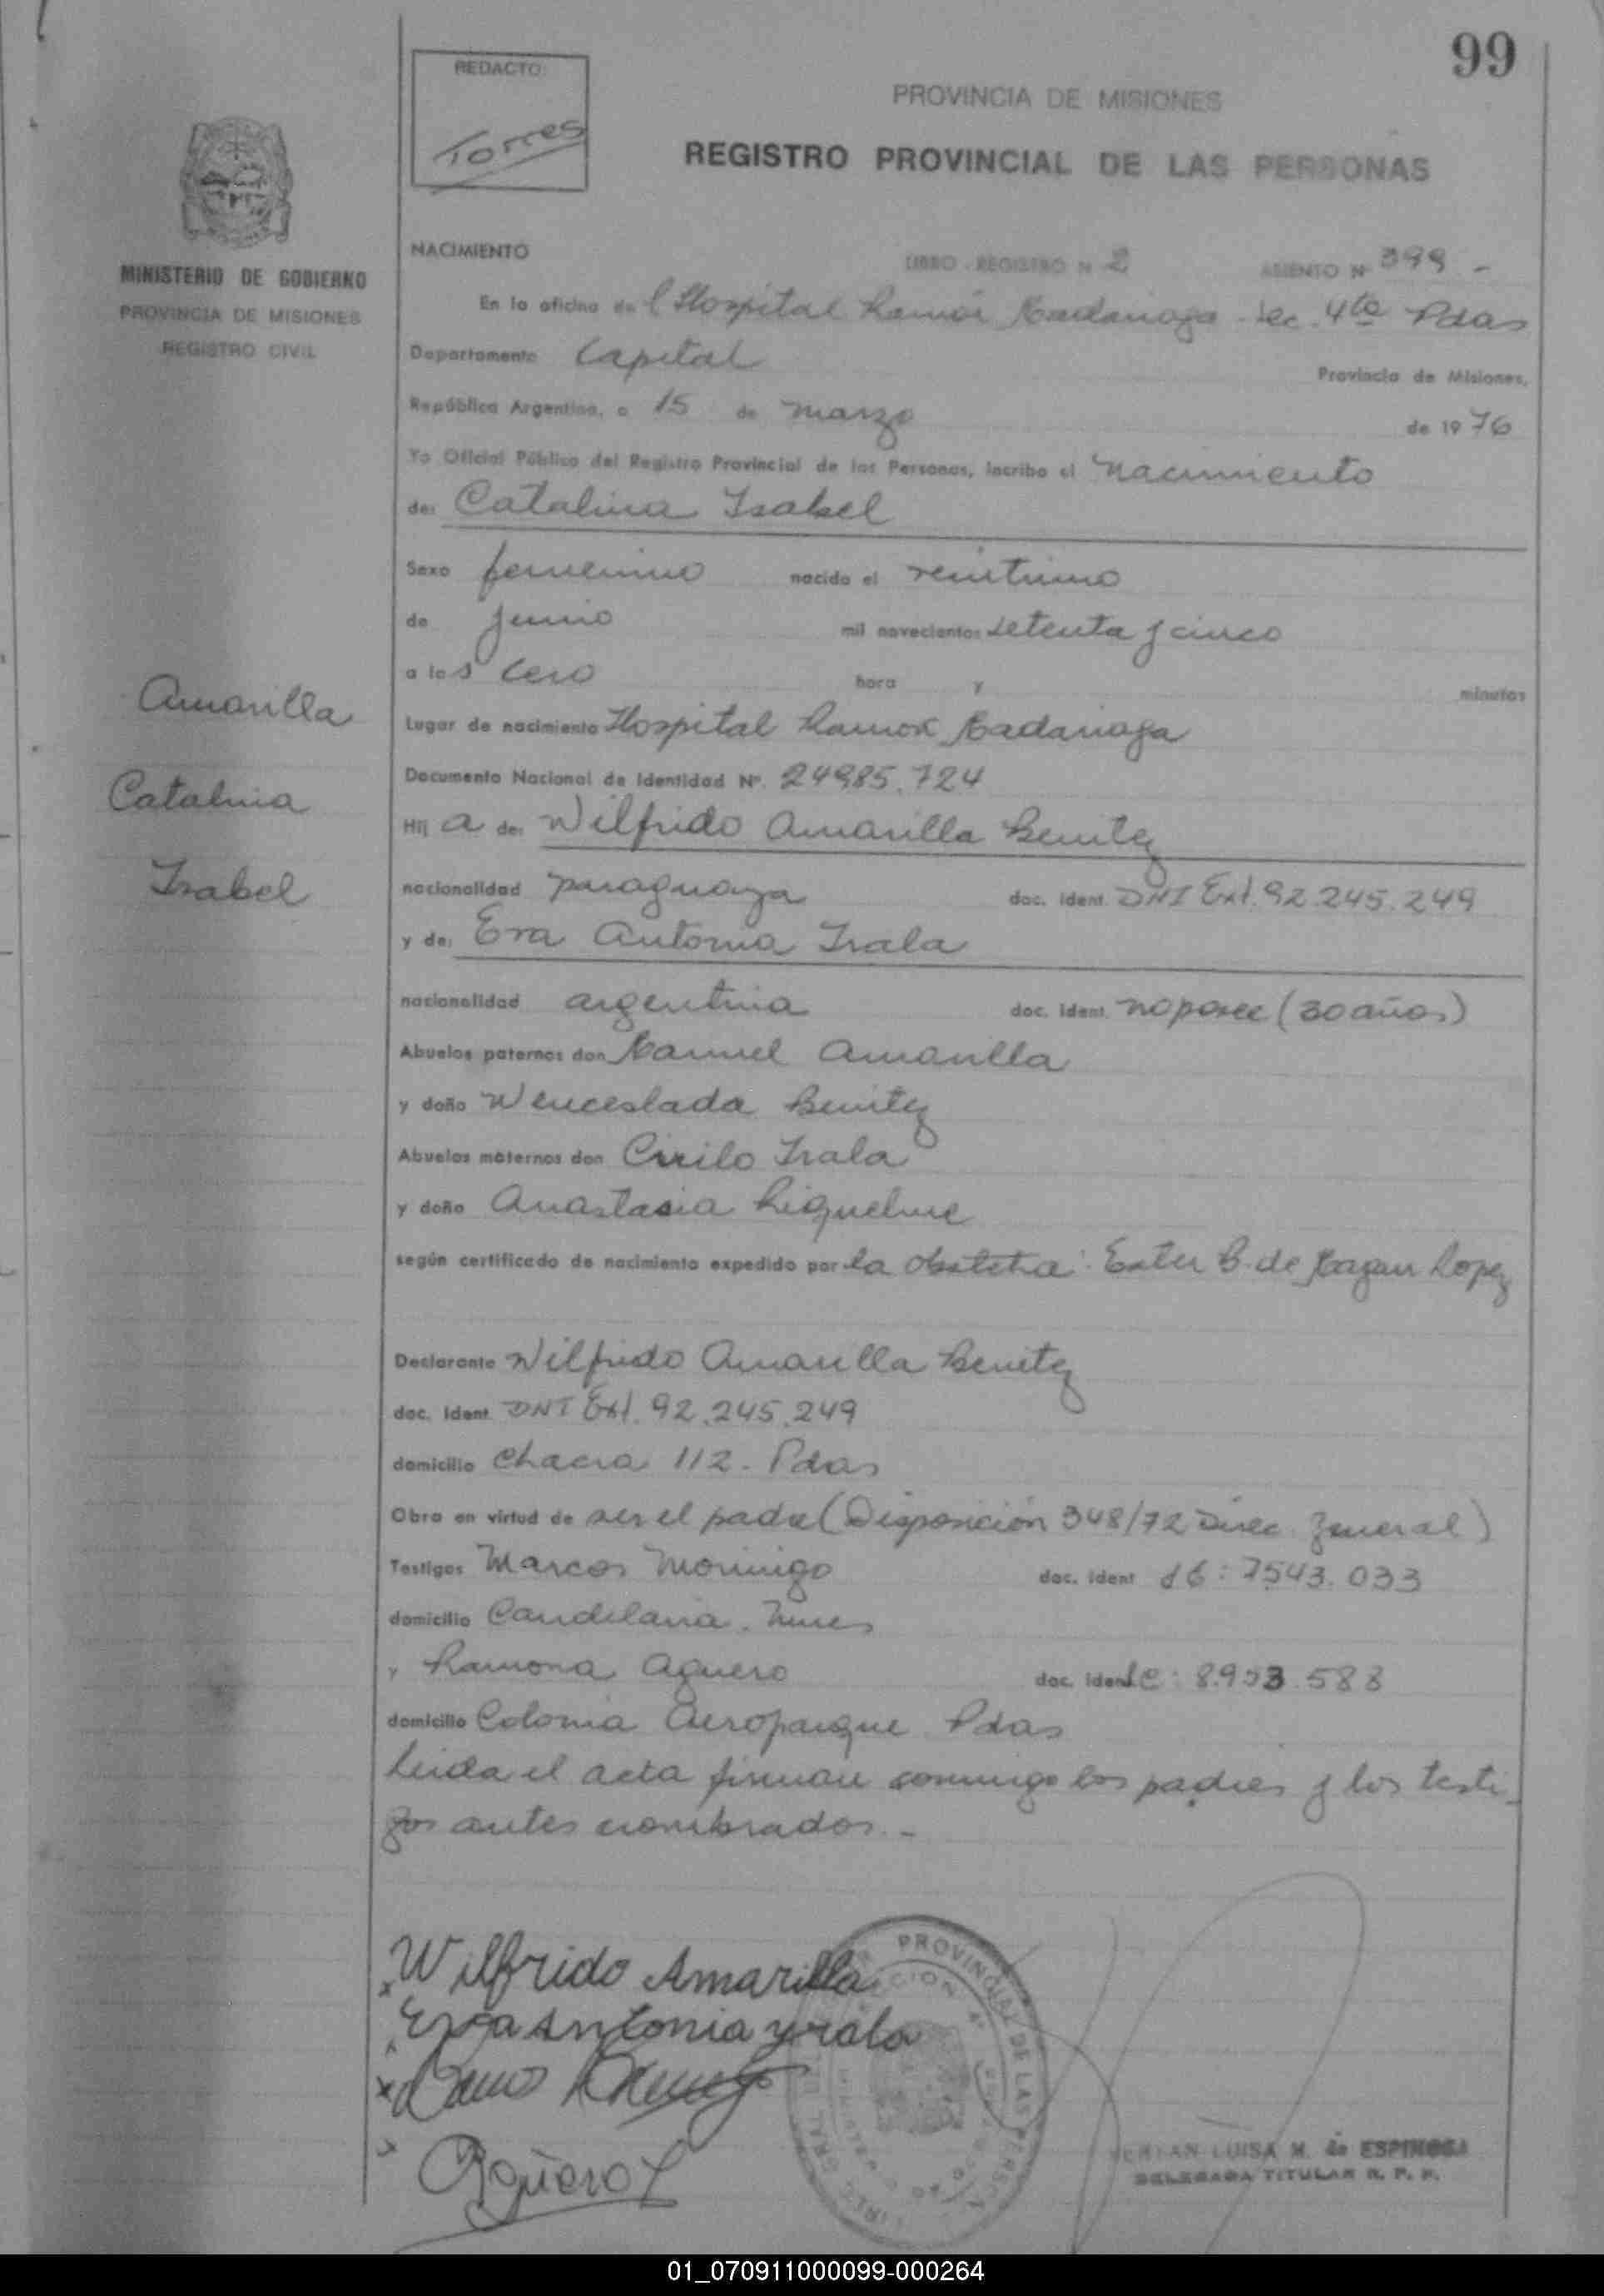 99
REDACTO:
Torres
PROVINCIA DE MISIONES
REGISTRO PROVINCIAL DE LAS PERSONAS
MINISTERIO DE GOBIERNO
PROVINCIA DE MISIONES
REGISTRO CIVIL
NACIMIENTO LIBRO - REGISTRO N 2 ASIENTO Nº 399 -
En la oficina de l Hospital Ramón Madariaga - Sec. 4ta Pdas
Departamento Capital Provincia de Misiones,
República Argentina, a 15 de marzo de 1976
Yo Oficial Público del Registro Provincial de las Personas, incribo el nacimiento
de: Catalina Isabel
Sexo femenino nacido el veintiuno
de junio mil novecientos setenta y cinco
a las cero hora y minutos
Amarilla
Catalina
Isabel
Lugar de nacimiento Hospital Ramón Madariaga
Documento Nacional de Identidad Nº. 24985.724
Hij a de: Wilfrido Amarilla Benitez
nacionalidad paraguaya doc. ident. DNI Ext. 92.245.249
y de: Eva Antonia Irala
nacionalidad argentina doc. ident. no posee (30 años)
Abuelos paternos don Manuel Amarilla
y doña Wenceslada Benitez
Abuelos maternos don Cirilo Irala
y doña Anastasia Riquelme
según certificado de nacimiento expedido por la obstetra: Ester B. de Magan Lopez
Declarante Wilfrido Amarilla Benitez
doc. ident. DNI Ext. 92.245.249
domicilio Chacra 112 - Pdas
Obra en virtud de ser el padre (Disposición 348/72 Direc. General)
Testigos Marcos Morinigo doc. ident 7543.033
domicilio Candelaria. Mnes
y Ramona Aguero doc. ident LC: 8.953.588
domicilio Colonia Aeroparque Pdas
Leida el acta firman conmigo los padres y los testi-
gos antes nombrados.-
Wilfrido Amarilla
Eva Antonia yrala
Agüero
LUISA M. de ESPINOSA
DELEGADA TITULAR R. P. P.
01_070911000099-000264